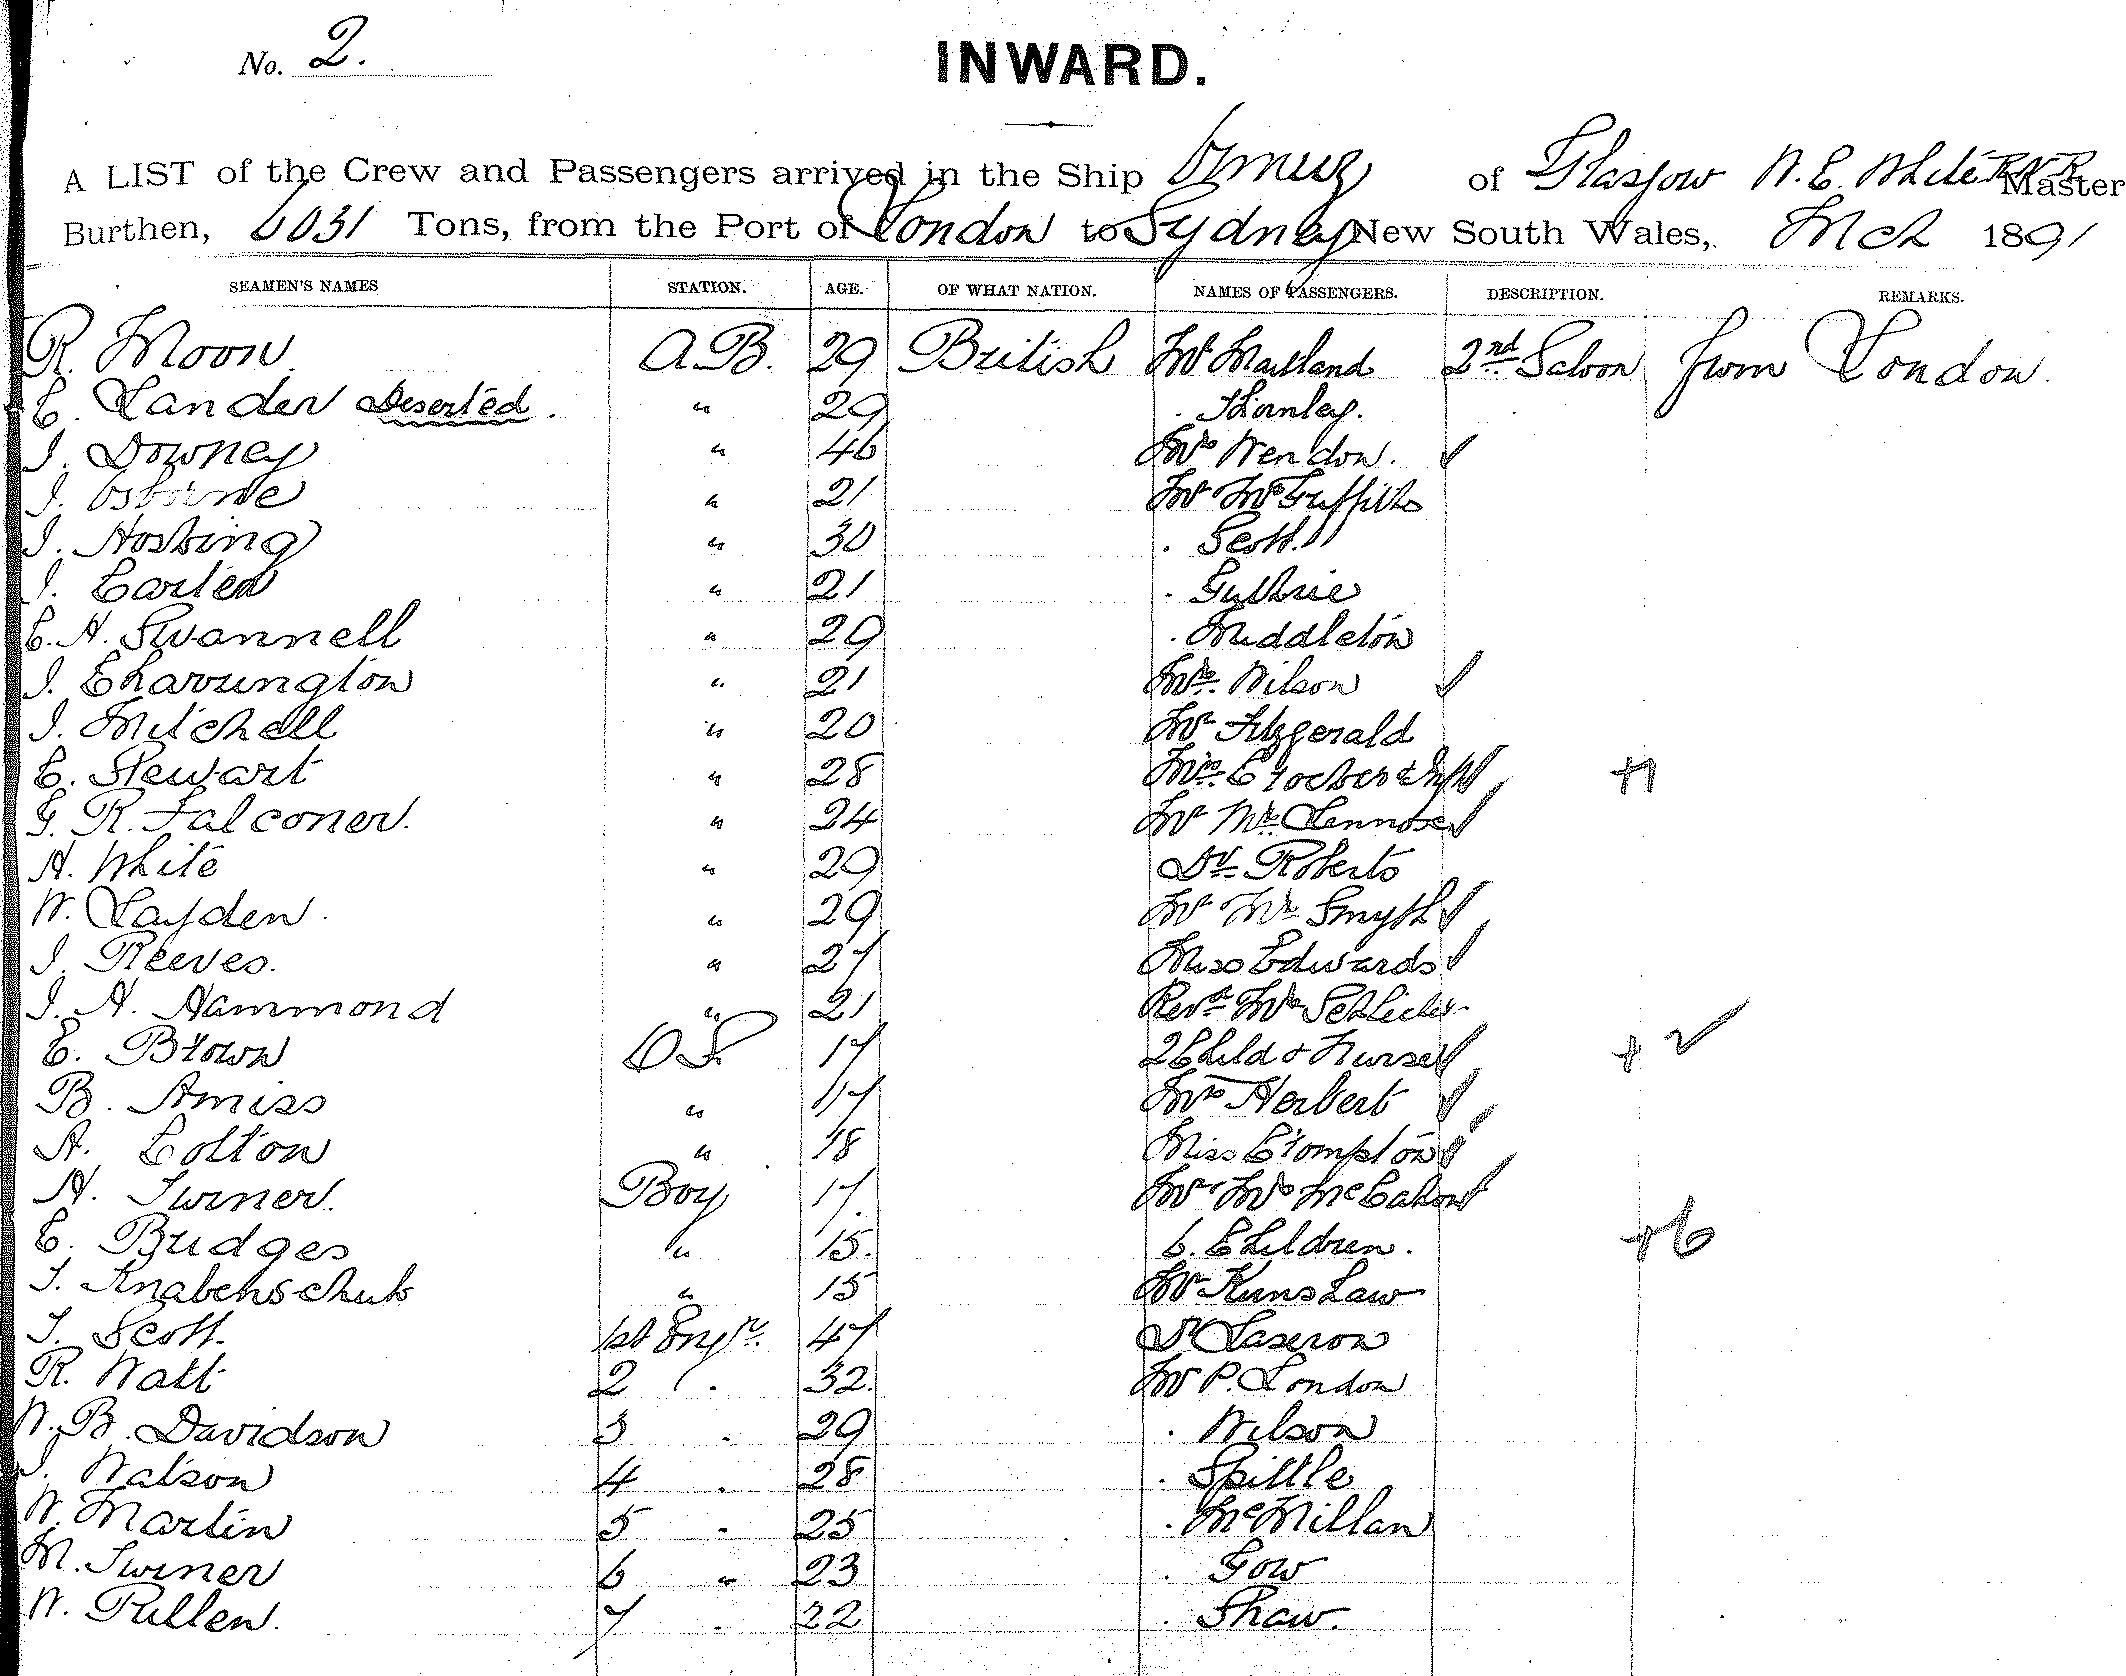 No. 2.
INWARD.
A LIST of the Crew and Passengers arrived in the Ship Ormuz of Glasgow W. E. White R.N.R. Master
Burthen, 6031 Tons, from the Port of London to Sydney New South Wales, Mch 1891
SEAMEN'S NAMES STATION. AGE. OF WHAT NATION. NAMES OF PASSENGERS. DESCRIPTION. REMARKS.
R. Moon A.B. 29 British Mr Maitland 2nd Saloon from London.
C. Lander Deserted. " 29 . Thornley.
J. Downey " 46 Mrs Wendon. ✓
J. Osborne " 21 Mr Mrs Griffiths
J. Hosking " 30 . Scott.
J. Carlen " 21 . Guthrie
C. H. Swannell " 29 . Middleton
J. Charrington " 21 Mrs. Wilson ✓
J. Mitchell " 20 Mr Fitzgerald
C. Stewart " 28 Mrs. Crocker & Inft ✓ +1
G. R. Falconer. " 24 Mr Mrs Lennox ✓
H. White " 29 Dr Roberts
W. Layden. " 29 Mr Mrs Smyth ✓
J. Reeves. " 27 Miss Edwards ✓
J. H. Hammond " 21 Revd Mrs
C. Brown O.S. 17 2 Child & Nurse ✓ + 2 ✓
B. Amiss " 17 Mrs Herbert ✓
A. Colton " 18 Miss Crompton ✓
H. Turner. Boy 17. Mr Mrs McCahon ✓
C. Bridges " 15. 6. Children. +6
T. Knabenschuh " 15 Mr Kunslaw
T. Scott. 1st Engr. 47 Dr Laseron
R. Watt 2 " . 32. Mr P. London
W. B. Davidson 3 . 29 . Wilson
J. Watson 4 . 28 . Spittle
W. Martin 5 . 25 . McMillan
M. Turner 6 " 23 . Gow
W. Pullen. 7 . 22 . Shaw.